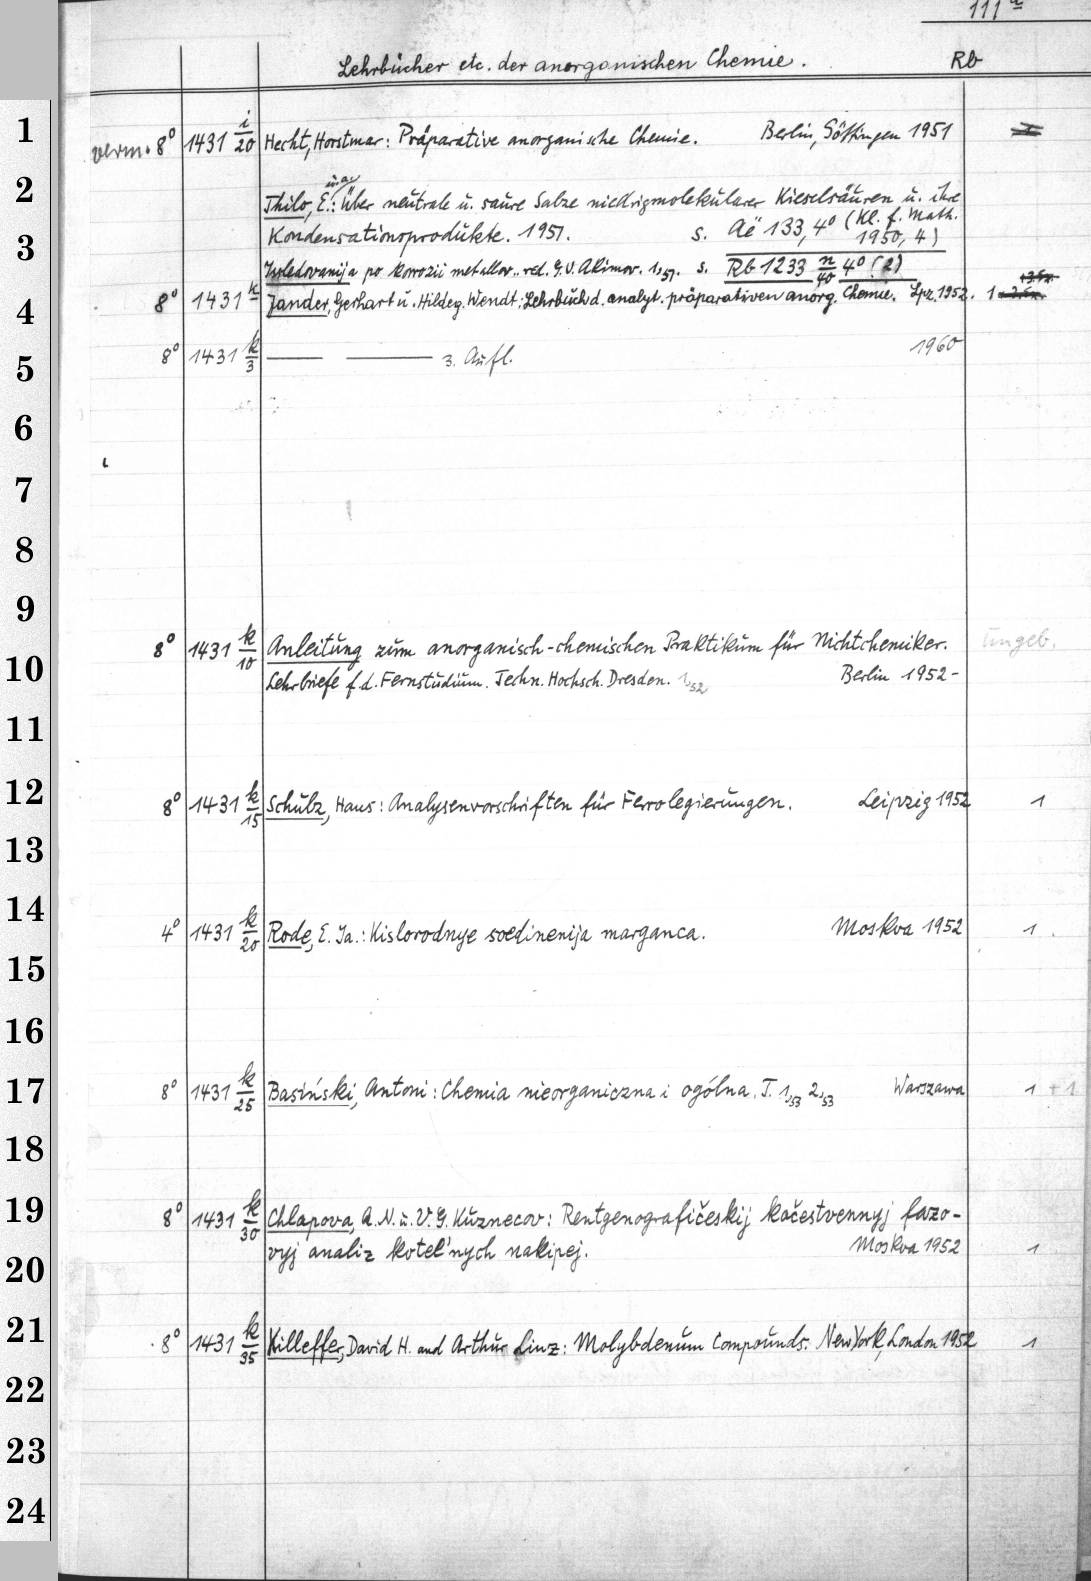 111 a
Lehrbücher etc. der anorganischen Chemie. Rb
1 verm. 8° 1431 i/20 Hecht, Horstmar: Präparative anorganische Chemie. Berlin, Göttingen 1951
2 Thilo, E. u.a.: Über neutrale u. saure Salze niedrigmolekularer Kieselsäuren u. ihre
3 Kondensationsprodukte. 1951. s. Aë 133, 4° (Kl. f. Math. 1950, 4)
Issledovanija po korrozii metallov.. red. G.V. Akimov. 1,51. s. Rb 1233 n/40 4° (2)
4 8° 1431 k Jander, Gerhart u. Hildeg. Wendt: Lehrbuch d. analyt. präparativen anorg. Chemie. Lpz. 1952. 1
5 8° 1431 k/3 —— —— 3. Aufl. 1960
6
7
8
9
10 8° 1431 k/10 Anleitung zum anorganisch-chemischen Praktikum für Nichtchemiker. ungeb.
Lehrbriefe f.d. Fernstudium. Techn. Hochsch. Dresden. 1,52 Berlin 1952-
11
12 8° 1431 k/15 Schulz, Hans: Analysenvorschriften für Ferrolegierungen. Leipzig 1952 1
13
14 4° 1431 k/20 Rode, E. Ja.: Kislorodnye soedinenija marganca. Moskva 1952 1
15
16
17 8° 1431 k/25 Basiński, Antoni: Chemia nieorganiczna i ogólna. T. 1,53 2,53 Warszawa 1 + 1
18
19 8° 1431 k/30 Chlapova, A.N. u. V.G. Kuznecov: Rentgenografičeskij kačestvennyj fazo-
20 vyj analiz kotel'nych nakipej. Moskva 1952 1
21 8° 1431 k/35 Killeffer, David H. and Arthur Linz: Molybdenum Compounds. New York, London 1952 1
22
23
24